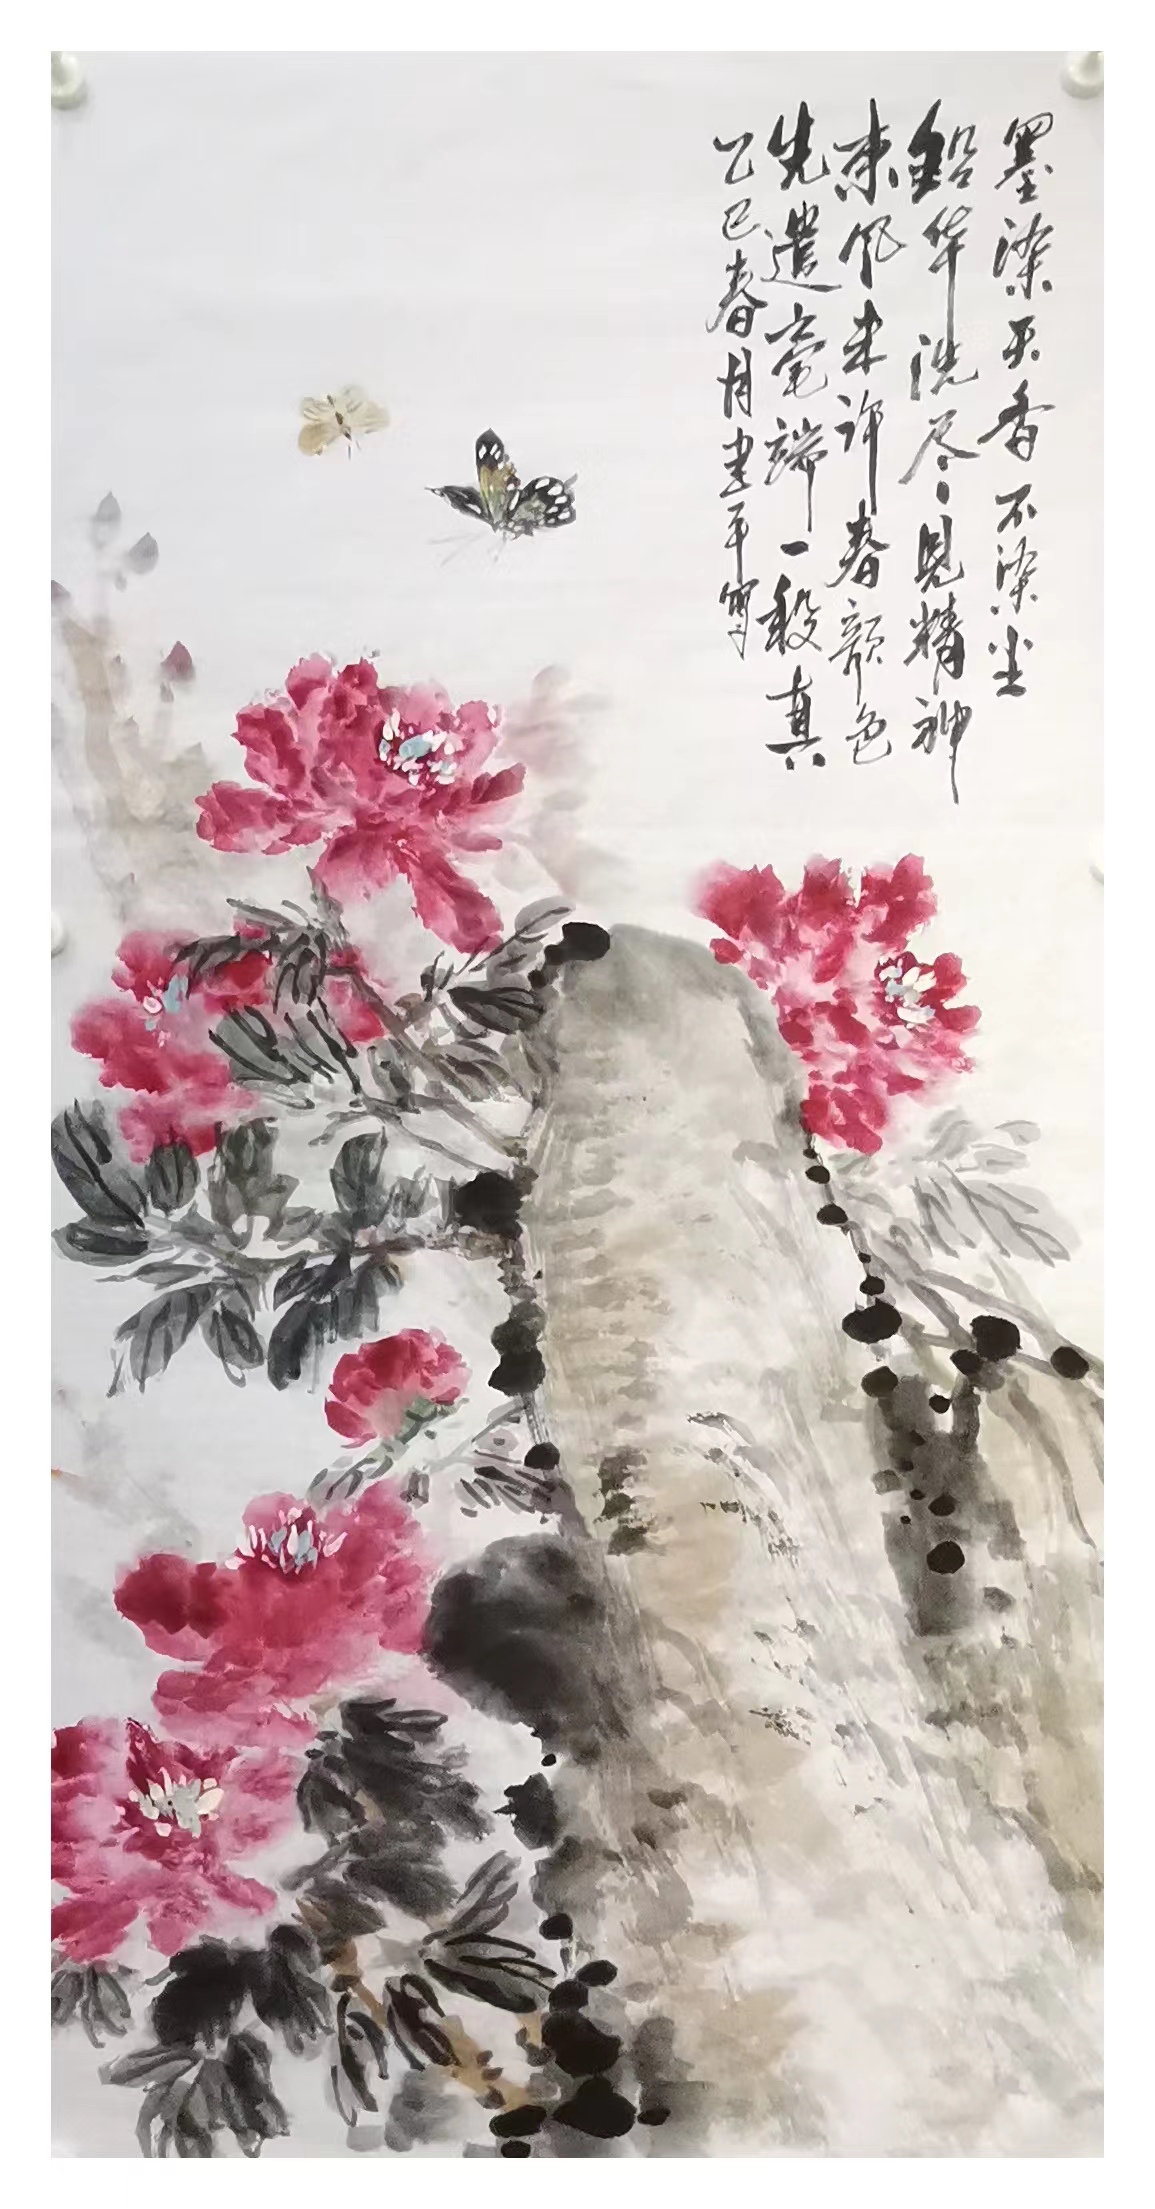 墨染天香不染尘
鉛华洗尽見精神
東风未许春颜色
先遣毫端一段真
乙巳春月建平寫